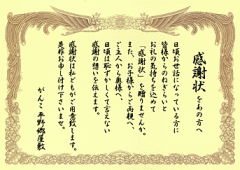 感謝状をあの方へ
日頃お世話になっている方に
皆様からのねぎらいと
お礼の気持ちを込めて
「感謝状」を贈りませんか。
また、お子様からご両親へ、
ご主人から奥様へ、
日頃は恥ずかしくて言えない
感謝の想いを伝えます。
感謝状は私どもがご用意致します。
是非お申し付け下さいませ。
がんこ平野郷屋敷